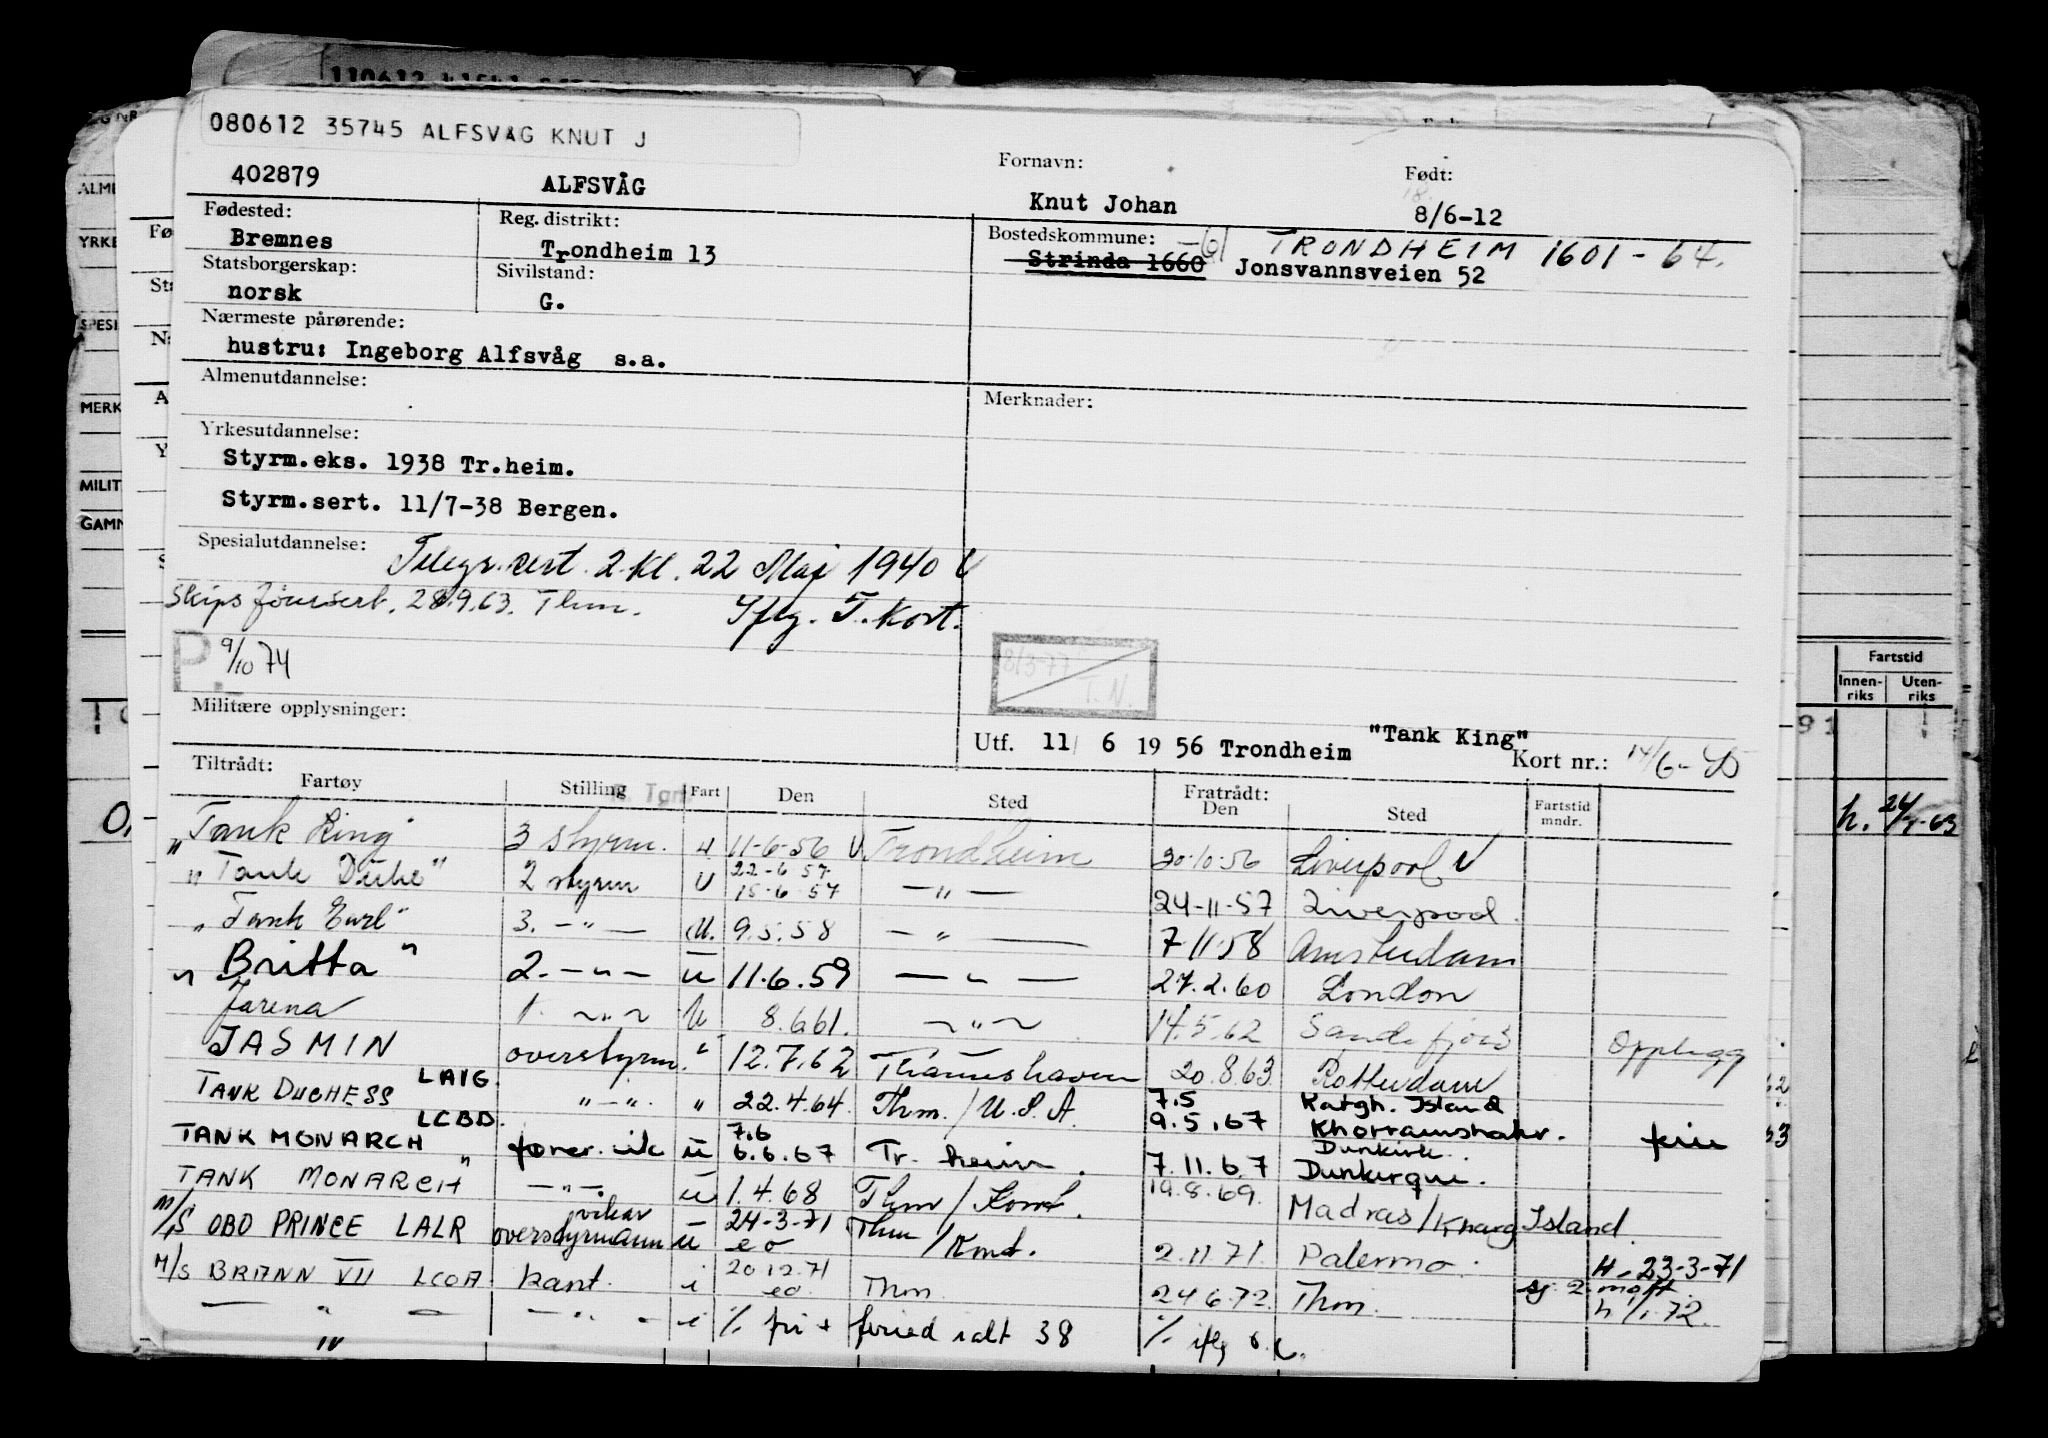 080612 35745 ALFSVÅG KNUT J
402879 ALFSVÅG
Fornavn: Knut Johan
Født: 8/6-12
Fødested: Bremnes
Reg. distrikt: Trondheim 13
Bostedskommune: Strinda 1660 -61 TRONDHEIM 1601 - 64.
Jonsvannsveien 52
Statsborgerskap: norsk
Sivilstand: G.
Nærmeste pårørende:
hustru: Ingeborg Alfsvåg s.a.
Almenutdannelse:
Merknader:
Yrkesutdannelse:
Styrm.eks. 1938 Tr.heim.
Styrm.sert. 11/7-38 Bergen.
Spesialutdannelse: Telegr. sert. 2. kl. 22 Mai 1940 V
Skipsførersert. 28.9.63. Thm. Iflg. T. Kort.
P. 9/10 74
8/3-77 T. N.
Militære opplysninger:
Utf. 11/ 6 19 56 Trondheim "Tank King"
Kort nr.:
Tiltrådt:
Fartøy Stilling Fart Den Sted Fratrådt: Den Sted Fartstid mndr.
"Tank King" 3 styrm. u 11-6-56 V Trondheim 30-10-56 Liverpool V
"Tank Duke" 2 styrm U 22-6 57 15-6-57 — " — 24-11-57 Liverpool.
"Tank Earl" 3. — " — U. 9.5.58 — " — 7-11-58 Amsterdam
" Britta " 2. — " — u 11.6.59 — " — 27.2.60 London
Jarena 1. ~ " ~ U 8.6.61. ~ " ~ 14.5.62 Sandefjord Opplegg
JASMIN overstyrm. " 12.7.62 Thamshavn 20.8.63. Rotterdam
TANK DUCHESS LAIG. " - ". " 22.4.64. Thm. / U.S.A. 7.5 9.5.67 Kargh. Island Khorramshahr. ferie
TANK MONARCH LCBD. fører. vik u 7.6 6.6.67 Tr. heim. 7.11.67 Dunkirk. Dunkerque.
TANK MONARCH " — " —. u 1.4.68 Thm / Komb. 19.8.69. Madras / Kharg Island.
M/S OBO PRINCE LALR overstyrmann vikar u 24-3-71 eo Thm / Kont. 2.11 71. Palermo. H. 23-3-71
M/S BRANN VII LCOA kapt. i 20 12.71 eo. Thm 24 6.72. Thm. sj. 2. h /1.72.
— " — — " — i % fri + feried i alt 38 % iflg
Fartstid
Innen- Uten-
riks riks
h. 24/